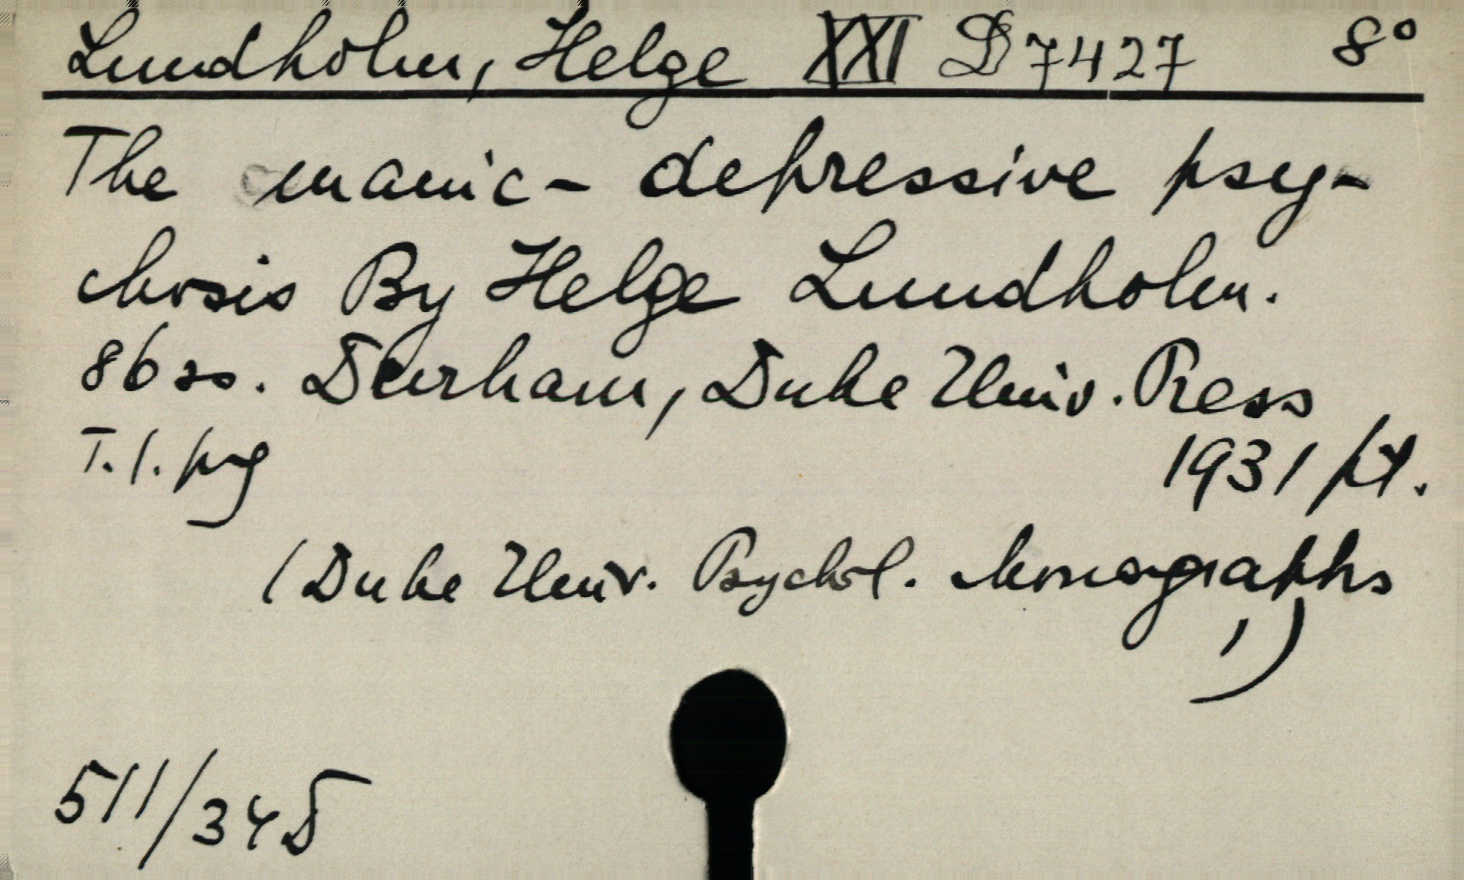 Lundholm, Helge XXI D 7427 8°
The manic-depressive psy-
chosis By Helge Lundholm.
86 ss. Durham, Duke Univ. Press
T. 1. prg 1931 pt.
(Duke Univ. Psychol. Monographs
1)
511/34 5